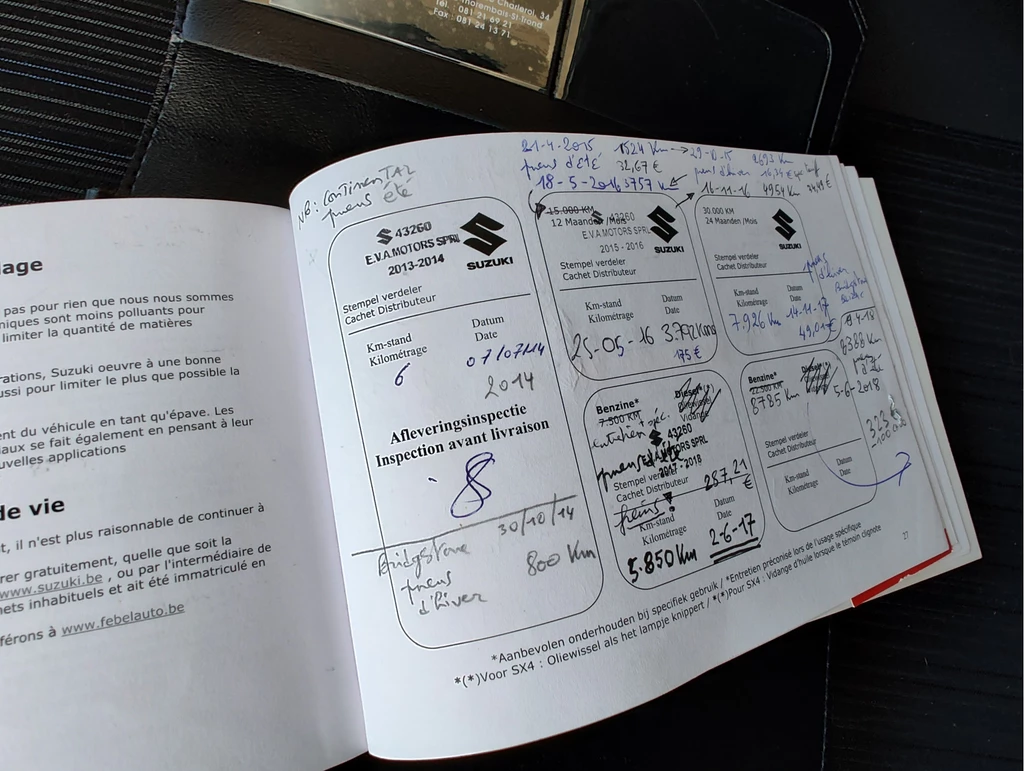 Charleroi, 34
Thorembais-St-Trond
Tél. : 081 21 69 21
Fax : 081 24 13 71
lage
pas pour rien que nous nous sommes
niques sont moins polluants pour
limiter la quantité de matières
rations, Suzuki oeuvre à une bonne
ussi pour limiter le plus que possible la
ent du véhicule en tant qu'épave. Les
aux se fait également en pensant à leur
uvelles applications
de vie
t, il n'est plus raisonnable de continuer à
rer gratuitement, quelle que soit la
www.suzuki.be , ou par l'intermédiaire de
nets inhabituels et ait été immatriculé en
férons à www.febelauto.be
NB: ContinenTAL
pneus été
43260
E.V.A.MOTORS SPRL
2013-2014
SUZUKI
Stempel verdeler
Cachet Distributeur
Km-stand Datum
Kilométrage Date
6 07/07/14
2014
Afleveringsinspectie
Inspection avant livraison
30/10/14
Bridgstone
pneus 800 Km
d'hiver
21-4-2015 1524 Km
pneus d'été 32,67 €
18-5-2016 3757 Km
15.000 KM
12 Maanden /Mois
43260
E.V.A.MOTORS SPRL
2015 - 2016
SUZUKI
Stempel verdeler
Cachet Distributeur
Km-stand Datum
Kilométrage Date
25-05-16 3.792 Kms
175 €
2693 Km
pneus d'hiver
16-11-16 4954 Km 24,49 €
30.000 KM
24 Maanden /Mois
SUZUKI
Stempel verdeler
Cachet Distributeur
pneus d'hiver
Bridgstone
Km-stand Datum
Kilométrage Date
7.926 Km 14-11-17
49,01 €
Benzine* Diesel*
7.500 KM
entretien spéc.
43260
MOTORS SPRL
2017 - 2018
Stempel verdeler
Cachet Distributeur
287,21 €
pneus
Km-stand Datum
Kilométrage Date
5.850 Km 2-6-17
Benzine*
22.500 KM
8785 Km 5-6-2018
8388 Km
Stempel verdeler
Cachet Distributeur
Km-stand Datum
Kilométrage Date
*Aanbevolen onderhouden bij specifiek gebruik / *Entretien préconisé lors de l'usage spécifique
*(*)Voor SX4 : Oliewissel als het lampje knippert / *(*)Pour SX4 : Vidange d'huile lorsque le témoin clignote
27